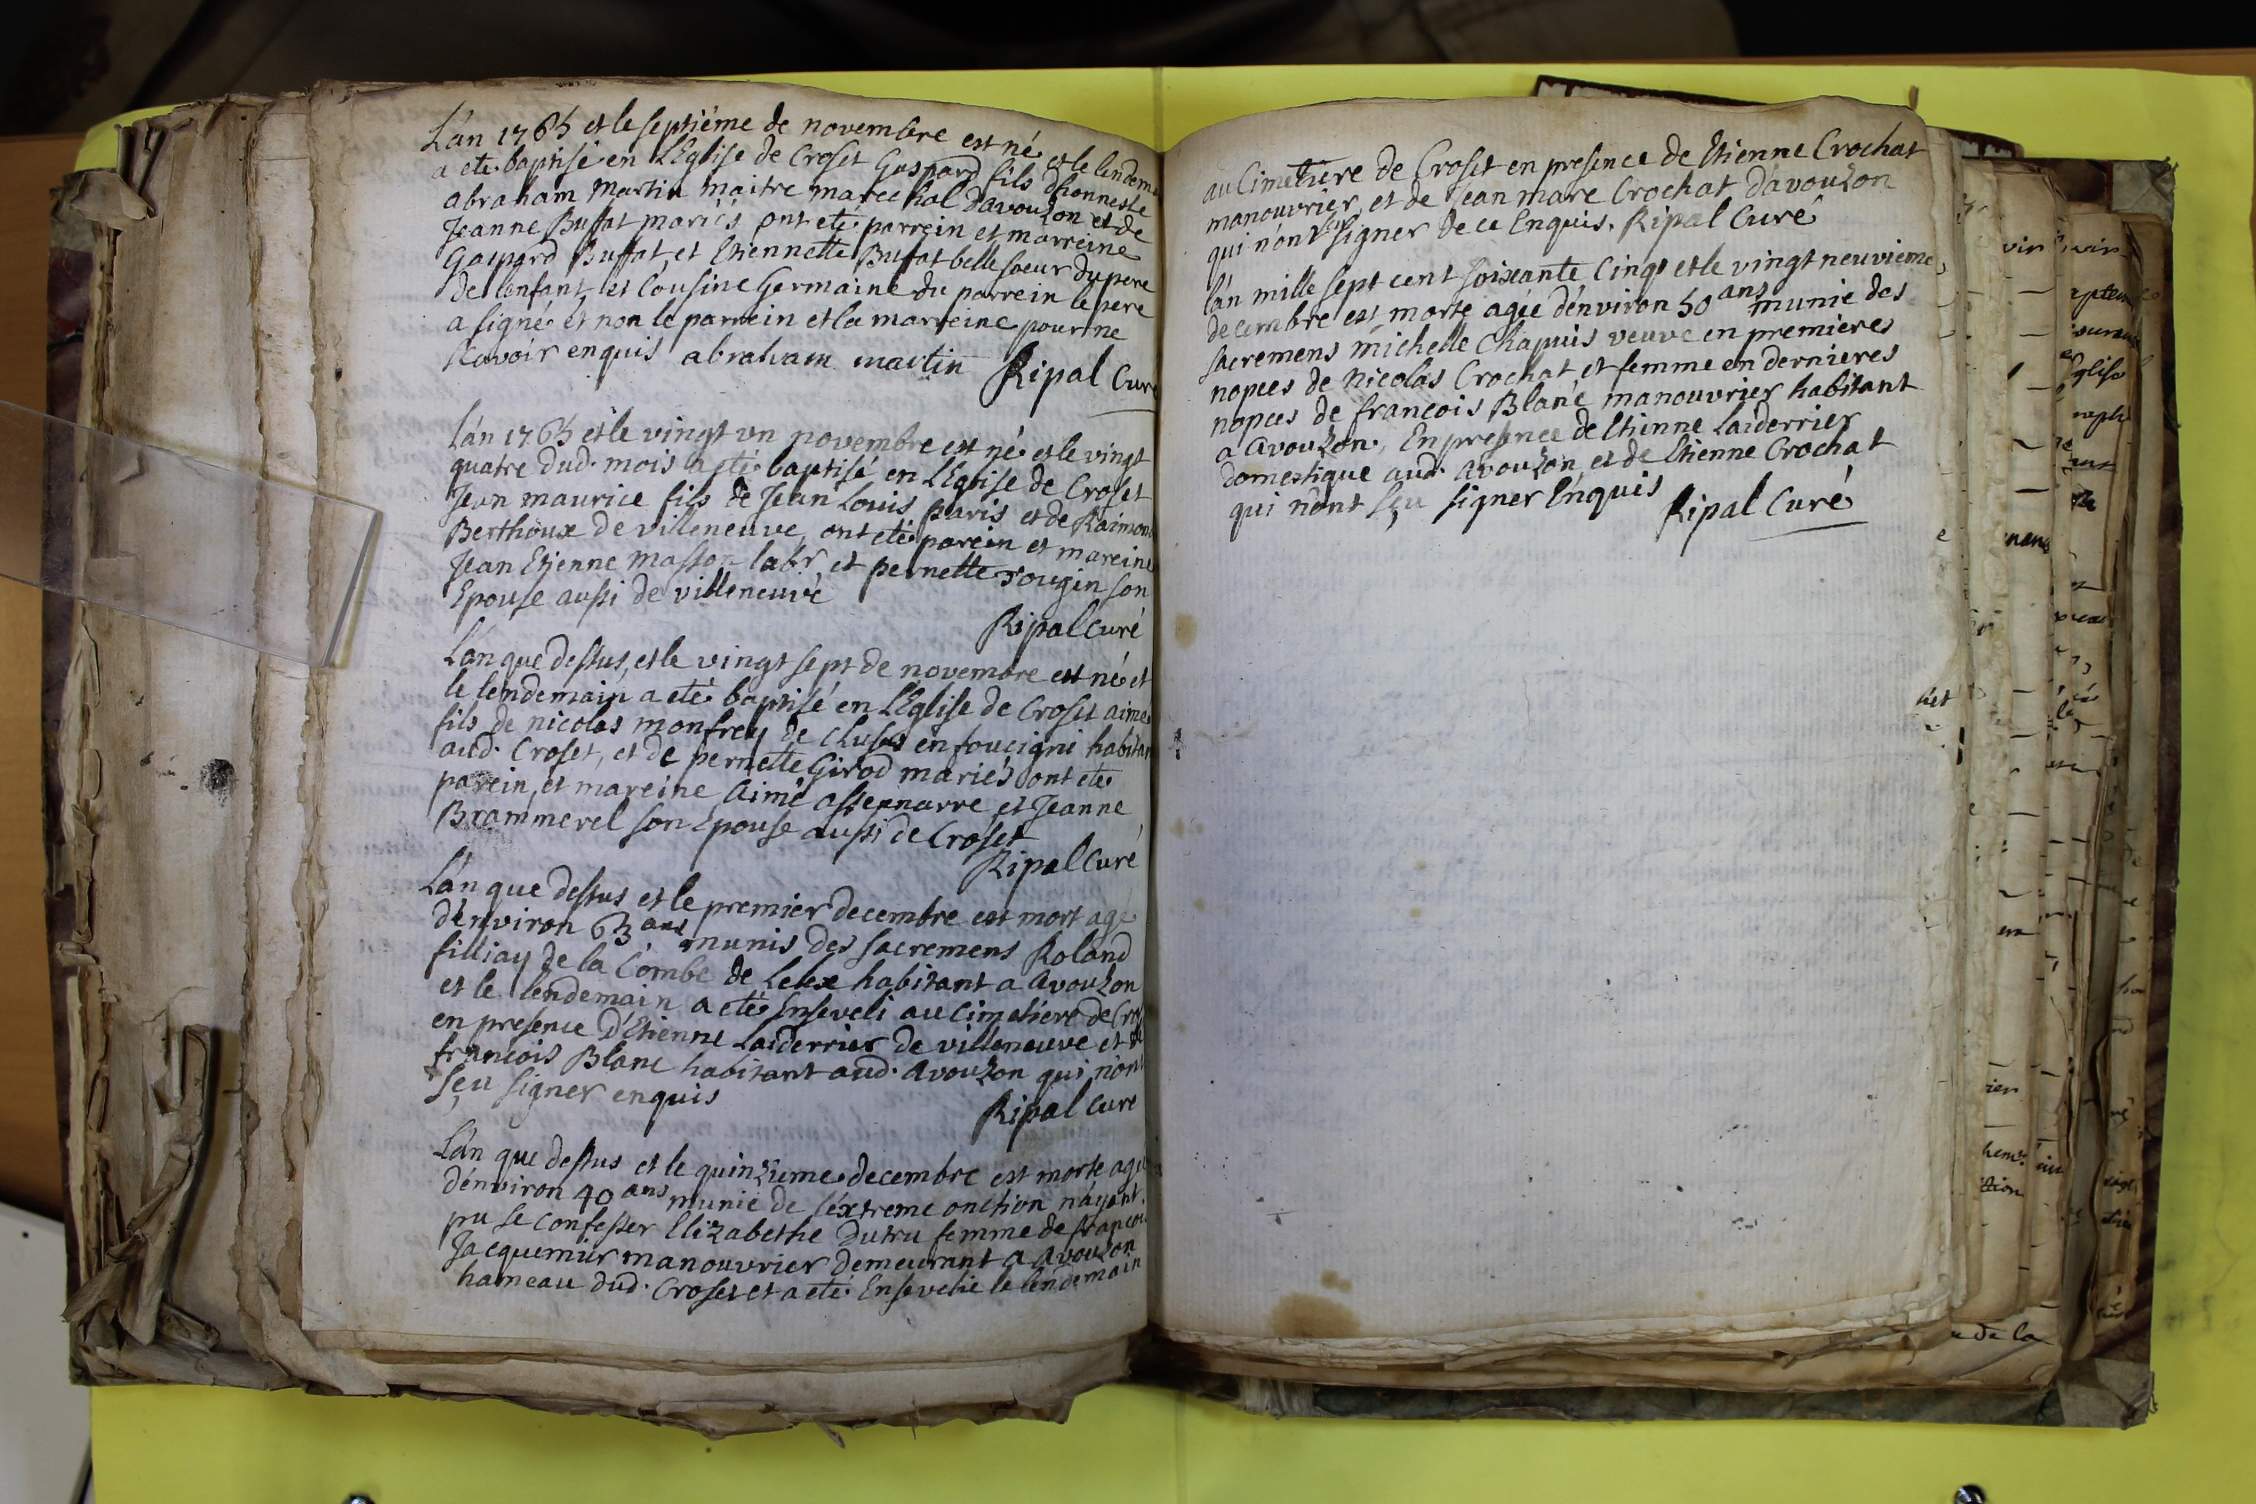 L'an 1765 et le septiéme de novembre est né et le lendem
a eté baptisé en l'Eglise de Croset Gaspard fils d'honneste
abraham Martin maitre marechal d'avouzon et de
Jeanne Buffat mariés ont eté parrein et marreine
Gaspard Buffat et Etiennette Buffat belle soeur du pere
de l'enfant et Cousine Germaine du parrein le pere
a signé et non le parrein et la marreine pour ne
scavoir enquis abraham martin Ripal Curé
l'an 1765 et le vingt un novembre est né et le vingt
quatre dud. mois a eté baptisé en l'Eglise de Croset
Jean maurice fils de Jean Louis paris et de Raimon
Berthoux de villeneuve, ont eté parein et mareine
Jean Etienne masson labr. et pernette rougin son
Epouse aussi de villeneuve
Ripal Curé
L'an que dessus, et le vingt sept de novembre est né et
le lendemain a eté baptisé en l'Eglise de Croset aimé
fils de nicolas monfrey de Cluses en foucigni habitan
aud. Croset, et de pernette Girod mariés ont eté
parein, et mareine Aimé assennarre et Jeanne
Brammerel son Epouse aussi de Croset
Ripal Curé
L'an que dessus et le premier decembre est mort agé
d'énviron 63 ans munis des sacremens Roland
filliay de la Combe de Lelex habitant a Avouzon
et le lendemain a eté Enseveli au Cimetiere de Cro
en presence d'Etienne Laiderrier de villeneuve et de
francois Blanc habitant aud. Avouzon qui n'ont
sçu signer enquis
Ripal Curé
L'an que dessus et le quinzieme decembre est morte ageé
d'énviron 40 ans munie de l'éxtreme onction n'ayant
pu se confesser Elizabethe Dutru femme de francois
Jacquemier manouvrier demeurant a Avouzon
hameau dud. Croset et a eté Ensevelie le lendemain
au Cimetiere de Croset en presence de Etienne Crochat
manouvrier, et de Jean marc Crochat d'avouzon
qui n'ont sçu signer de ce Enquis. Ripal Curé
l'an mille sept cent soixante Cinq et le vingt neuvieme
decembre est morte agée d'énviron 50 ans munie des
sacremens michelle Chapuis veuve en premieres
nopces de Nicolas Crochat et femme en dernieres
nopces de francois Blanc manouvrier habitant
a Avouzon. En presence de Etienne Laiderrier
domestique aud. Avouzon et de Etienne Crochat
qui n'ont sçu signer Enquis
Ripal Curé